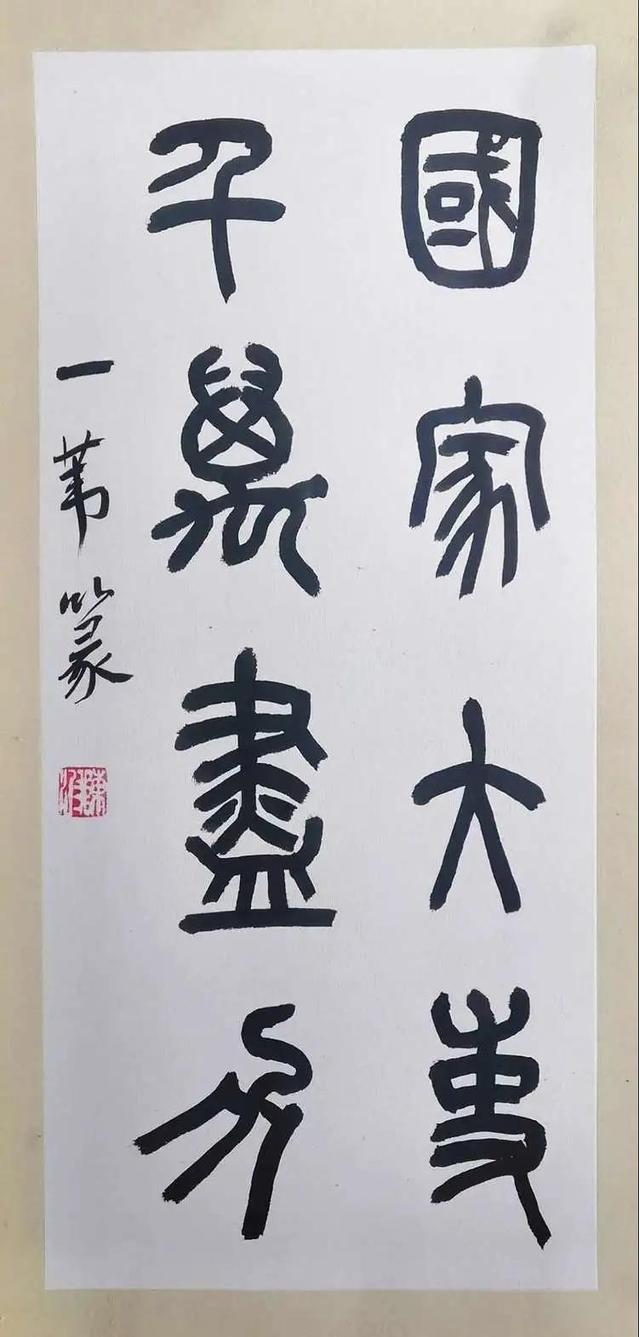 國家大事
千萬盡力
一苇篆